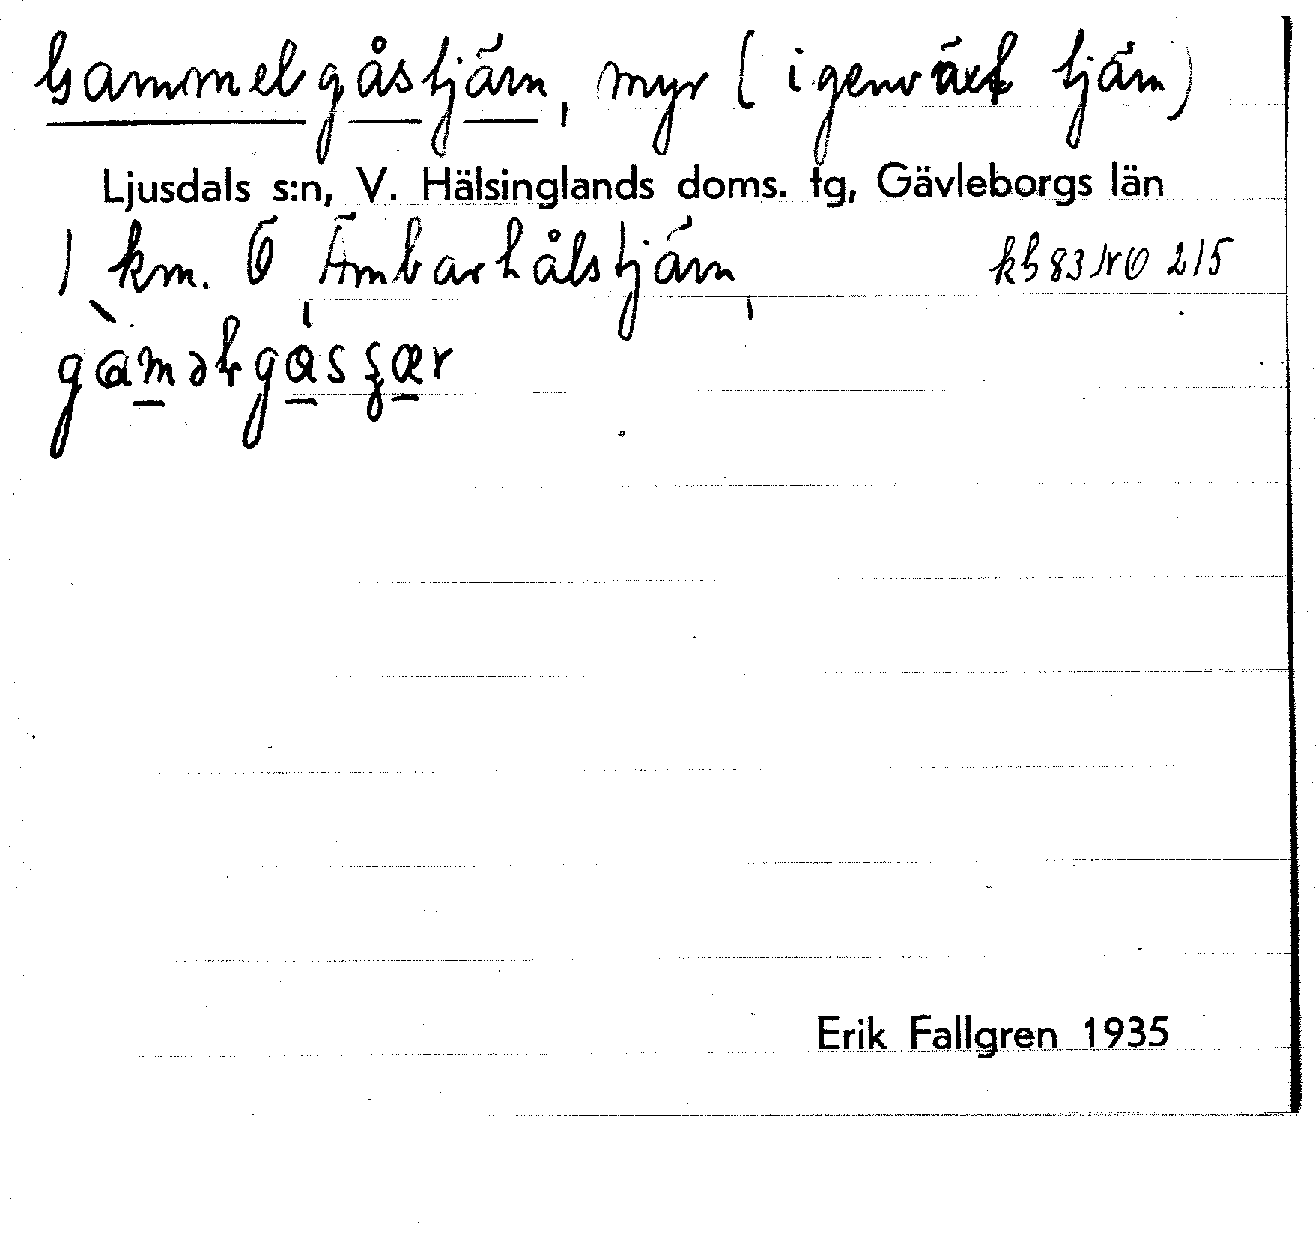 Gammelgåstjärn, myr (igenväxt tjärn)
Ljusdals s:n, V. Hälsinglands doms. tg, Gävleborgs län
1 km. Ö Ämbarhålstjärn,
kb 83 NO 215
Erik Fallgren 1935